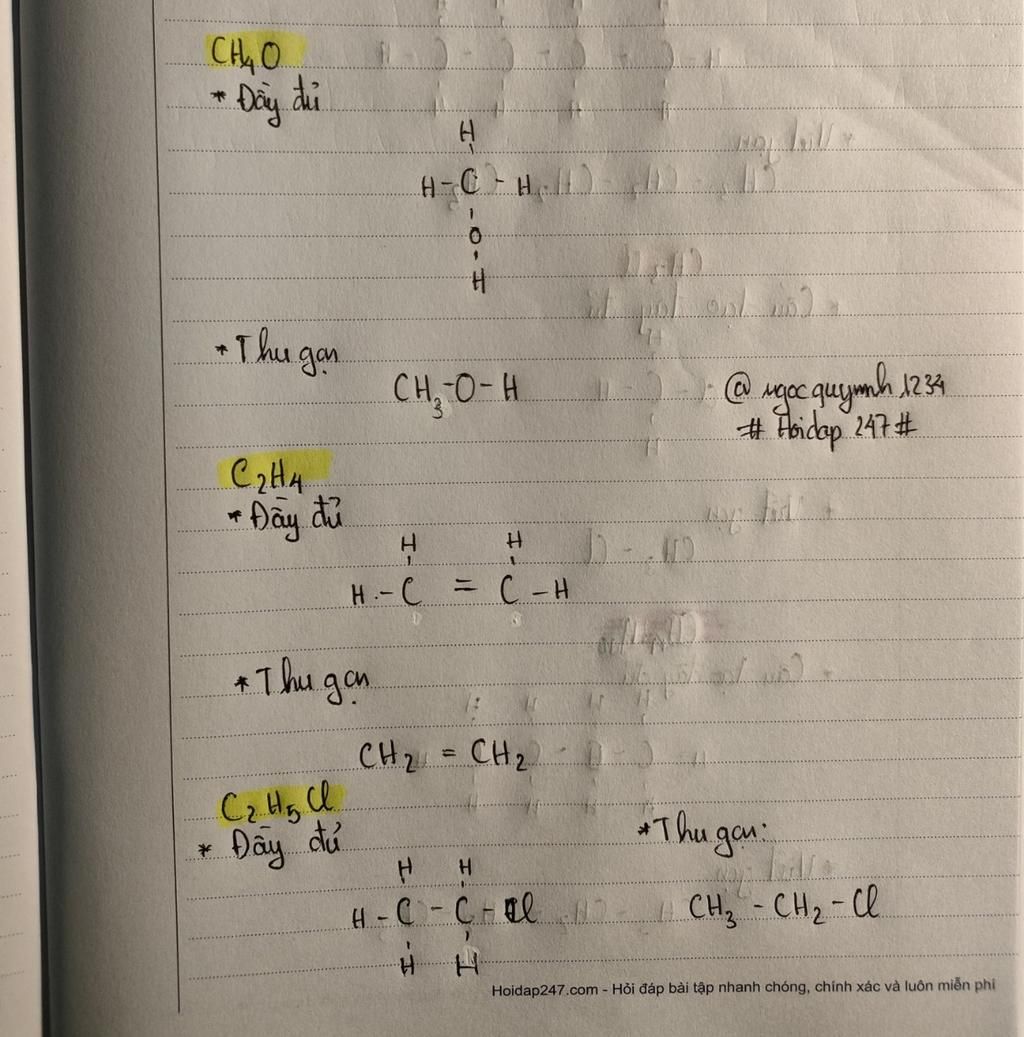 CH4O
* Đầy đủ
H
H - C - H
O
H
* Thu gọn
CH3-O-H
@ngocquynnh1234
# Hoidap 247#
C2H4
* Đầy đủ
H H
H - C = C - H
* Thu gọn
CH2 = CH2
C2H5Cl
* Đầy đủ
* Thu gọn:
H H
H - C - C - Cl
H H
CH3 - CH2 - Cl
Hoidap247.com - Hỏi đáp bài tập nhanh chóng, chính xác và luôn miễn phí